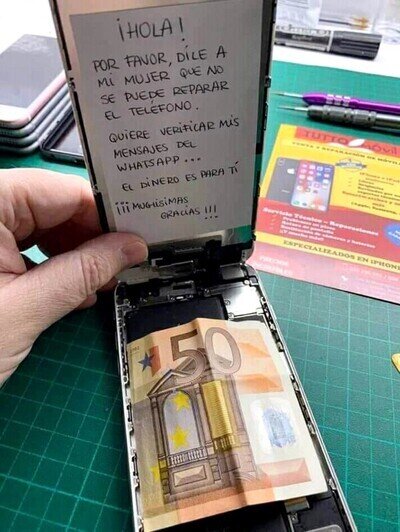 ¡HOLA!
POR FAVOR, DILE A
MI MUJER QUE NO
SE PUEDE REPARAR
EL TELÉFONO.
QUIERE VERIFICAR MIS
MENSAJES DEL
WHATSAPP...
EL DINERO ES PARA TÍ
¡¡¡MUCHÍSIMAS
GRACIAS!!!
TUTTO móvil
Servicio Técnico - Reparaciones
ESPECIALIZADOS EN iPHONE
50